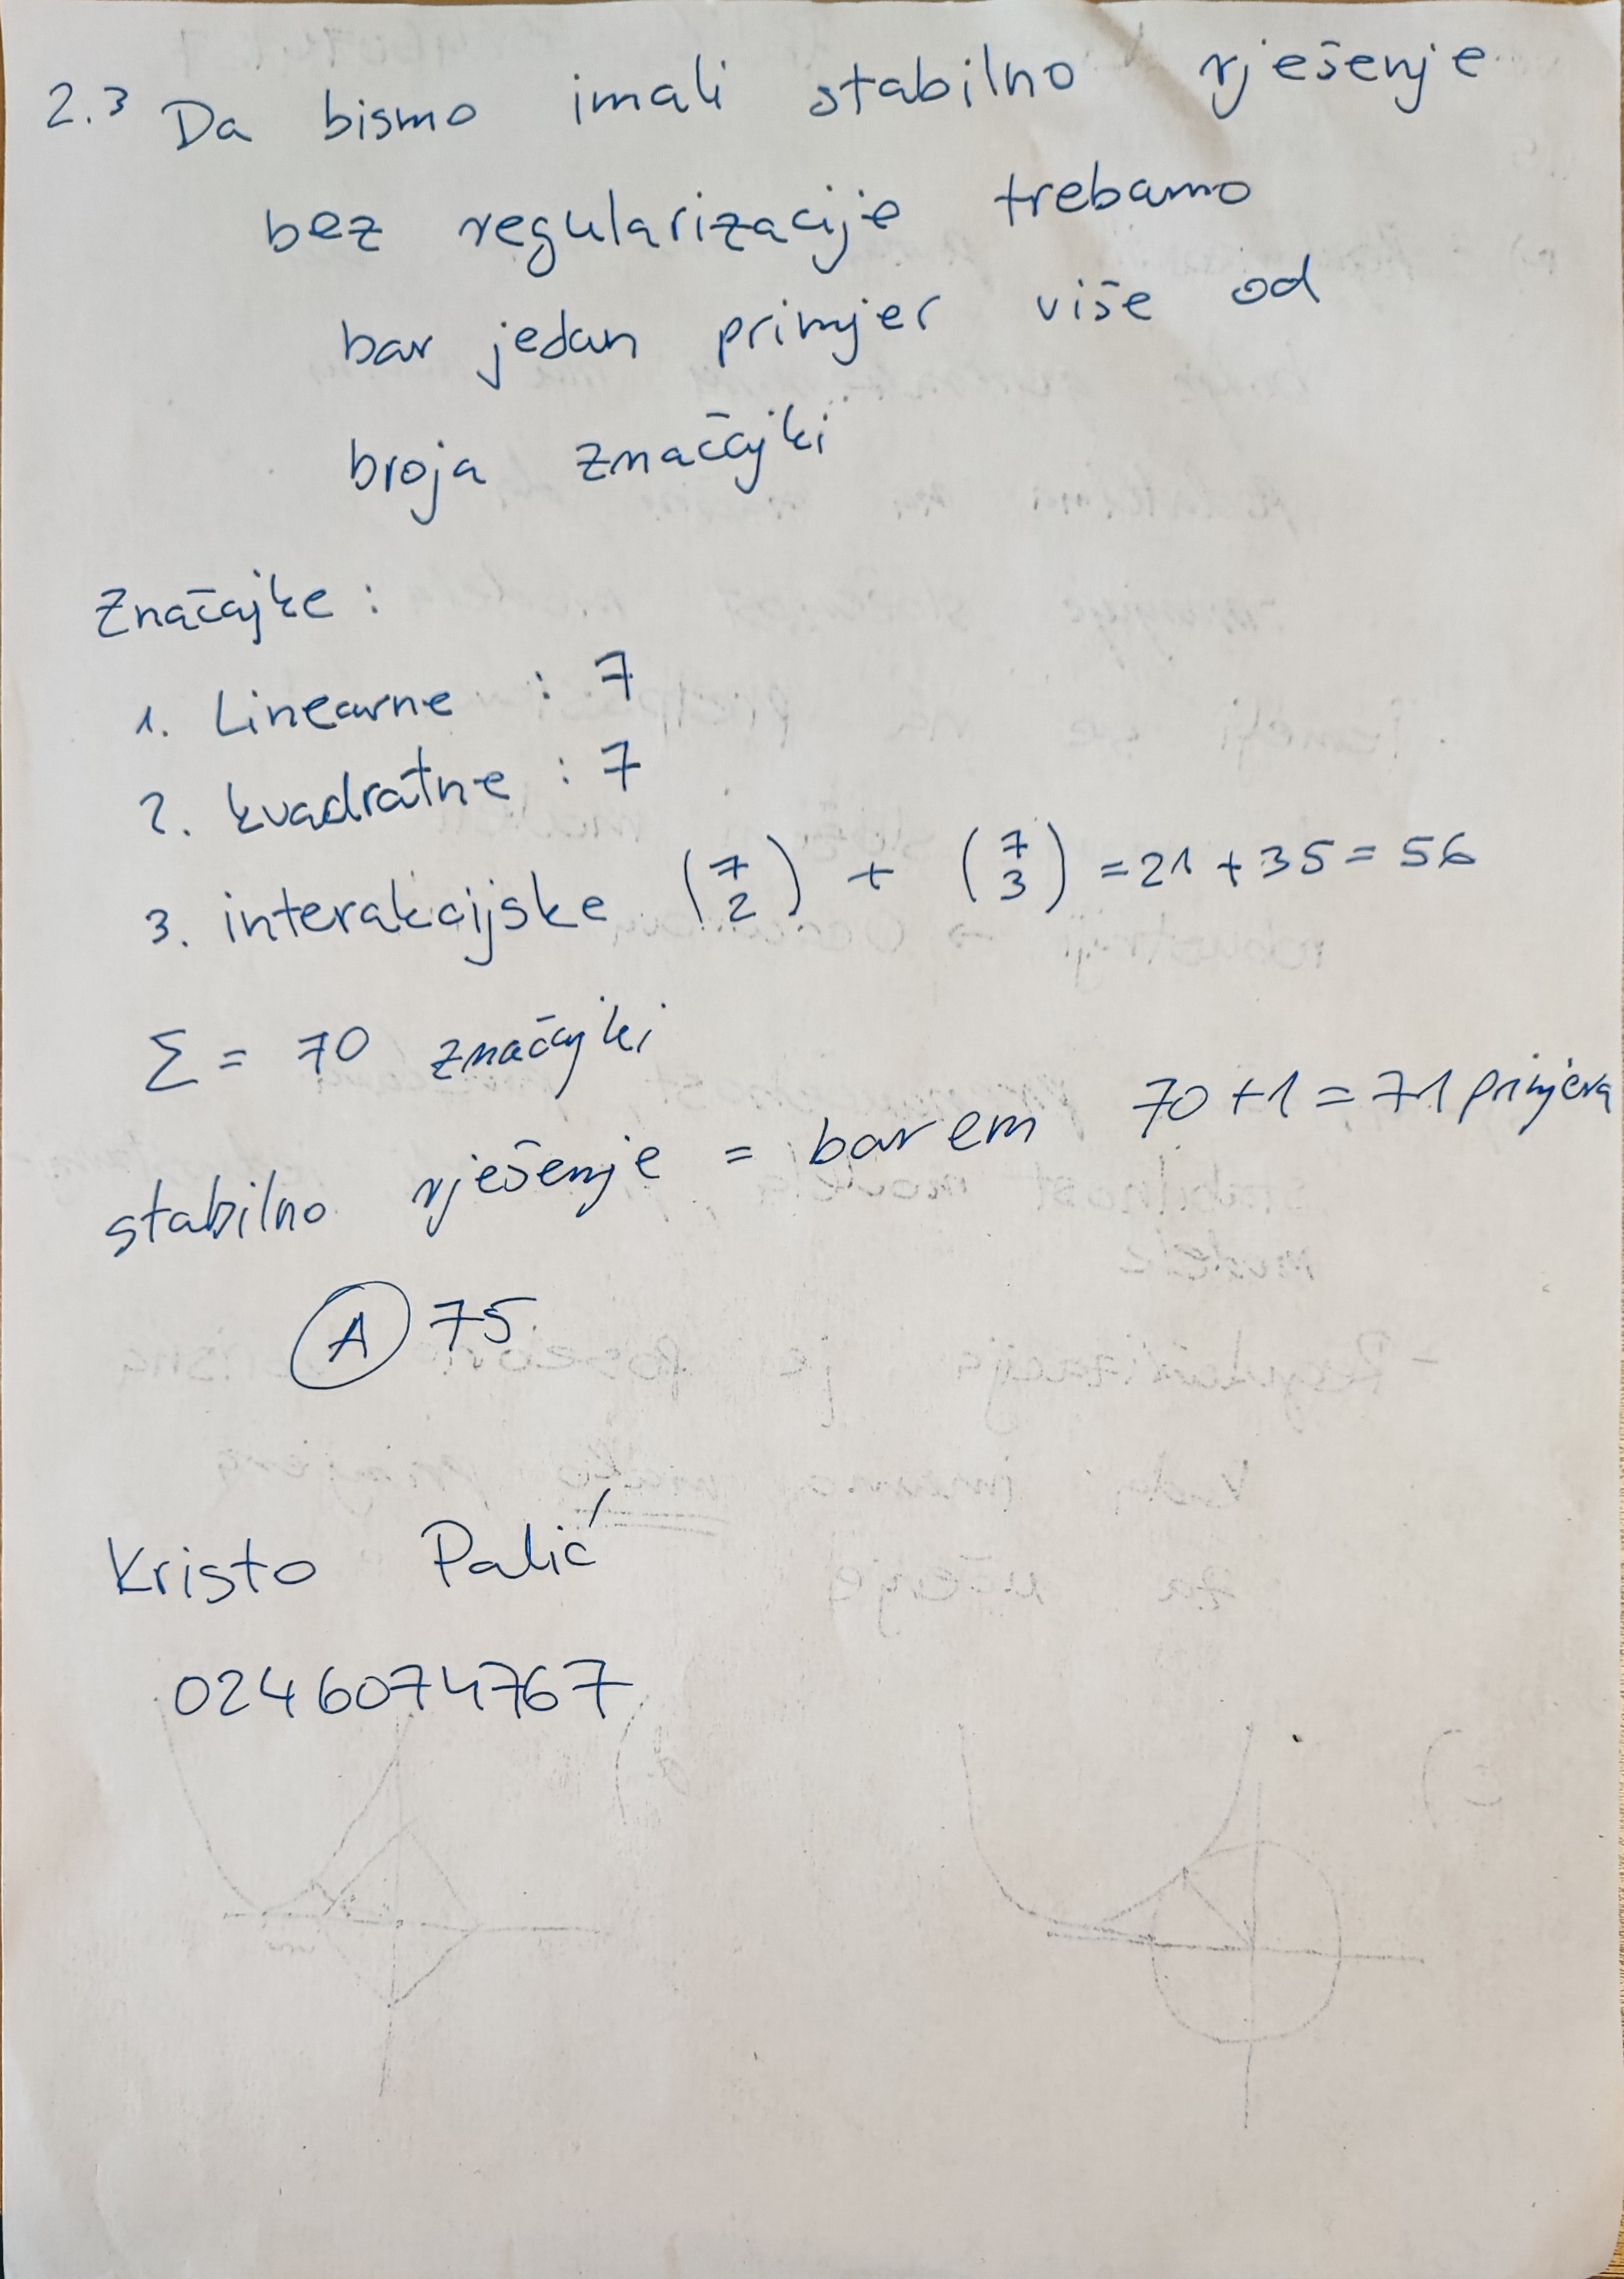 2.3 Da bismo imali stabilno rješenje
bez regularizacije trebamo
bar jedan primjer više od
broja značajki
Značajke :
1. Linearne : 7
2. kvadratne : 7
3. interakcijske (7 2) + (7 3) = 21 + 35 = 56
Σ = 70 značajki
stabilno rješenje = barem 70 + 1 = 71 primjera
A 75.
Kristo Palić
0246074767